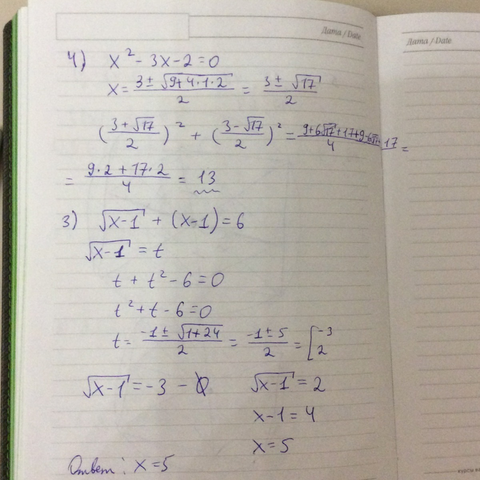 Дата / Date
Дата / Date
4) x² - 3x - 2 = 0
x = (3 ± √(9+4·1·2))/2 = (3 ± √17)/2
((3+√17)/2)² + ((3-√17)/2)² = (9+6√17+17+9-6√17+17)/4 =
= (9·2 + 17·2)/4 = 13
3) √(x-1) + (x-1) = 6
√(x-1) = t
t + t² - 6 = 0
t² + t - 6 = 0
t = (-1 ± √(1+24))/2 = (-1 ± 5)/2 = [-3
2
√(x-1) = -3 - Ø √(x-1) = 2
x-1 = 4
x = 5
Ответ: x = 5